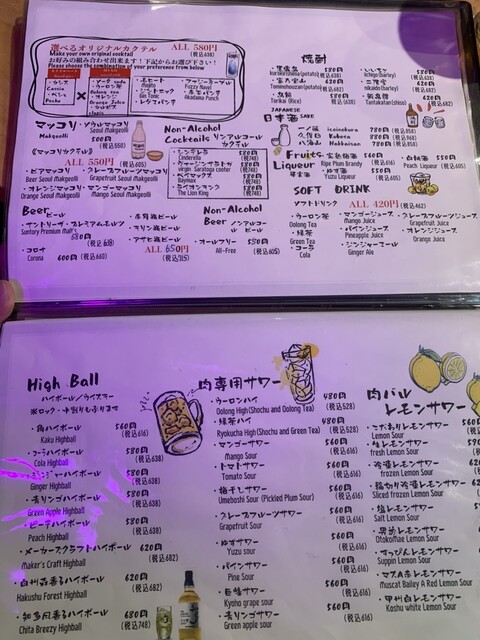 選べるオリジナルカクテル ALL 580円
(税込638)
Make your own original cocktail
お好みの組み合わせ出来ます！下記からお選び下さい！
Please choose the combination of your preference from below
・カシス
Cassis
・ピーチ
Peche
×
・ソーダ soda
・ウーロン茶
Oolong tea
・オレンジ
Orange Juice
・モヒート
Mojito
・ジントニック
Gin Tonic
・レゲエパンチ
・ファジーネーブル
Fuzzy Navel
・赤玉パンチ
Akadama Punch
マッコリ
Makgeolli
・ソウルマッコリ
Seoul Makgeolli
500円
(税込550)
《マッコリカクテル》
ALL 550円 (税込605)
・ビアマッコリ
Beer Seoul Makgeolli
・グレープフルーツマッコリ
Grapefruit Seoul Makgeolli
・オレンジマッコリ
Orange Seoul Makgeolli
・マンゴーマッコリ
Mango Seoul Makgeolli
Non-Alcohol
Cocktails ノンアルコールカクテル
・シンデレラ 680円
Cinderella (税込748)
・ヴァージンサラトガ 680円
virgin Saratoga cooler (税込748)
・ベイマックス 680円
Baymax (税込748)
・ライオンキング 680円
The Lion King (税込748)
Beer ビール
・サントリープレミアムモルツ
Suntory Premium Malt's
580円
(税込638)
・コロナ
Corona 600円 (税込660)
・赤星瓶ビール
・キリン瓶ビール
・アサヒ瓶ビール
ALL 650円
(税込715)
Non-Alcohol
Beer ノンアルコールビール
・オールフリー 550円
All-Free (税込605)
焼酎
・黒霧島
kurokirishima(potato)
・富乃宝山
Tominohouzan(potato)
・久頼
Torikai (Rice)
・いいちこ
Ichigo(barley)
・二階堂
nikaido(barley)
Tantakatan(shiso)
日本酒 JAPANESE SAKE
・一ノ蔵 icinokura 780円(税込858)
・久保田 Kubota 880円(税込968)
・八海山 Hakkaisan 780円(税込858)
Fruits Liqueur
果実酒
Ripe Plum Brandy (税込616)
・ゆず酒 550円
Yuzu Liqueur (税込605)
・白桃酒 550円
Peach Liqueur (税込605)
SOFT DRINK
ソフトドリンク ALL 420円 (税込462)
・ウーロン茶
Oolong Tea
・緑茶
Green Tea
・コーラ
Cola
・マンゴージュース
Mango Juice
・パインジュース
Pineapple Juice
・ジンジャーエール
Ginger Ale
・グレープフルーツジュース
Grapefruit Juice
・オレンジジュース
Orange Juice
High Ball
ハイボール/ウイスキー
※ロック・水割りもあります
・角ハイボール 560円
Kaku Highball (税込616)
・コーラハイボール 580円
Cola Highball (税込638)
・ジンジャーハイボール 580円
Ginger Highball (税込638)
・青リンゴハイボール 580円
Green Apple Highball (税込638)
・ピーチハイボール 580円
Peach Highball (税込638)
・メーカーズクラフトハイボール 620円
Maker's Craft Highball (税込682)
・白州森香るハイボール 620円
Hakushu Forest Highball (税込682)
・知多風香るハイボール 680円
Chita Breezy Highball (税込748)
肉専用サワー
・ウーロンハイ 480円
Oolong High(Shochu and Oolong Tea) (税込528)
・緑茶ハイ 480円
Ryokucha High(Shochu and Green Tea) (税込528)
・マンゴーサワー 560円
Mango Sour (税込616)
・トマトサワー 560円
Tomato Sour (税込616)
・梅干しサワー 560円
Umeboshi Sour (Pickled Plum Sour) (税込616)
・グレープフルーツサワー 560円
Grapefruit Sour (税込616)
・ゆずサワー 560円
Yuzu sour (税込616)
・パインサワー 560円
Pine Sour (税込616)
・巨峰サワー 560円
Kyoho grape sour (税込616)
・青リンゴサワー 560円
Green apple sour (税込616)
肉バル
レモンサワー
・こだわりレモンサワー
Lemon Sour
・生レモンサワー
fresh Lemon Sour
・冷凍レモンサワー
frozen Lemon Sour
・輪切り冷凍レモンサワー
Sliced frozen Lemon Sour
・塩レモンサワー
Salt Lemon Sour
・男気レモンサワー
OtokoMae Lemon Sour
・すっぴんレモンサワー
Suppin Lemon Sour
・マスカットベーリーA赤レモンサワー
muscat Bailey A Red Lemon Sour
・甲州白レモンサワー
Koshu white Lemon Sour